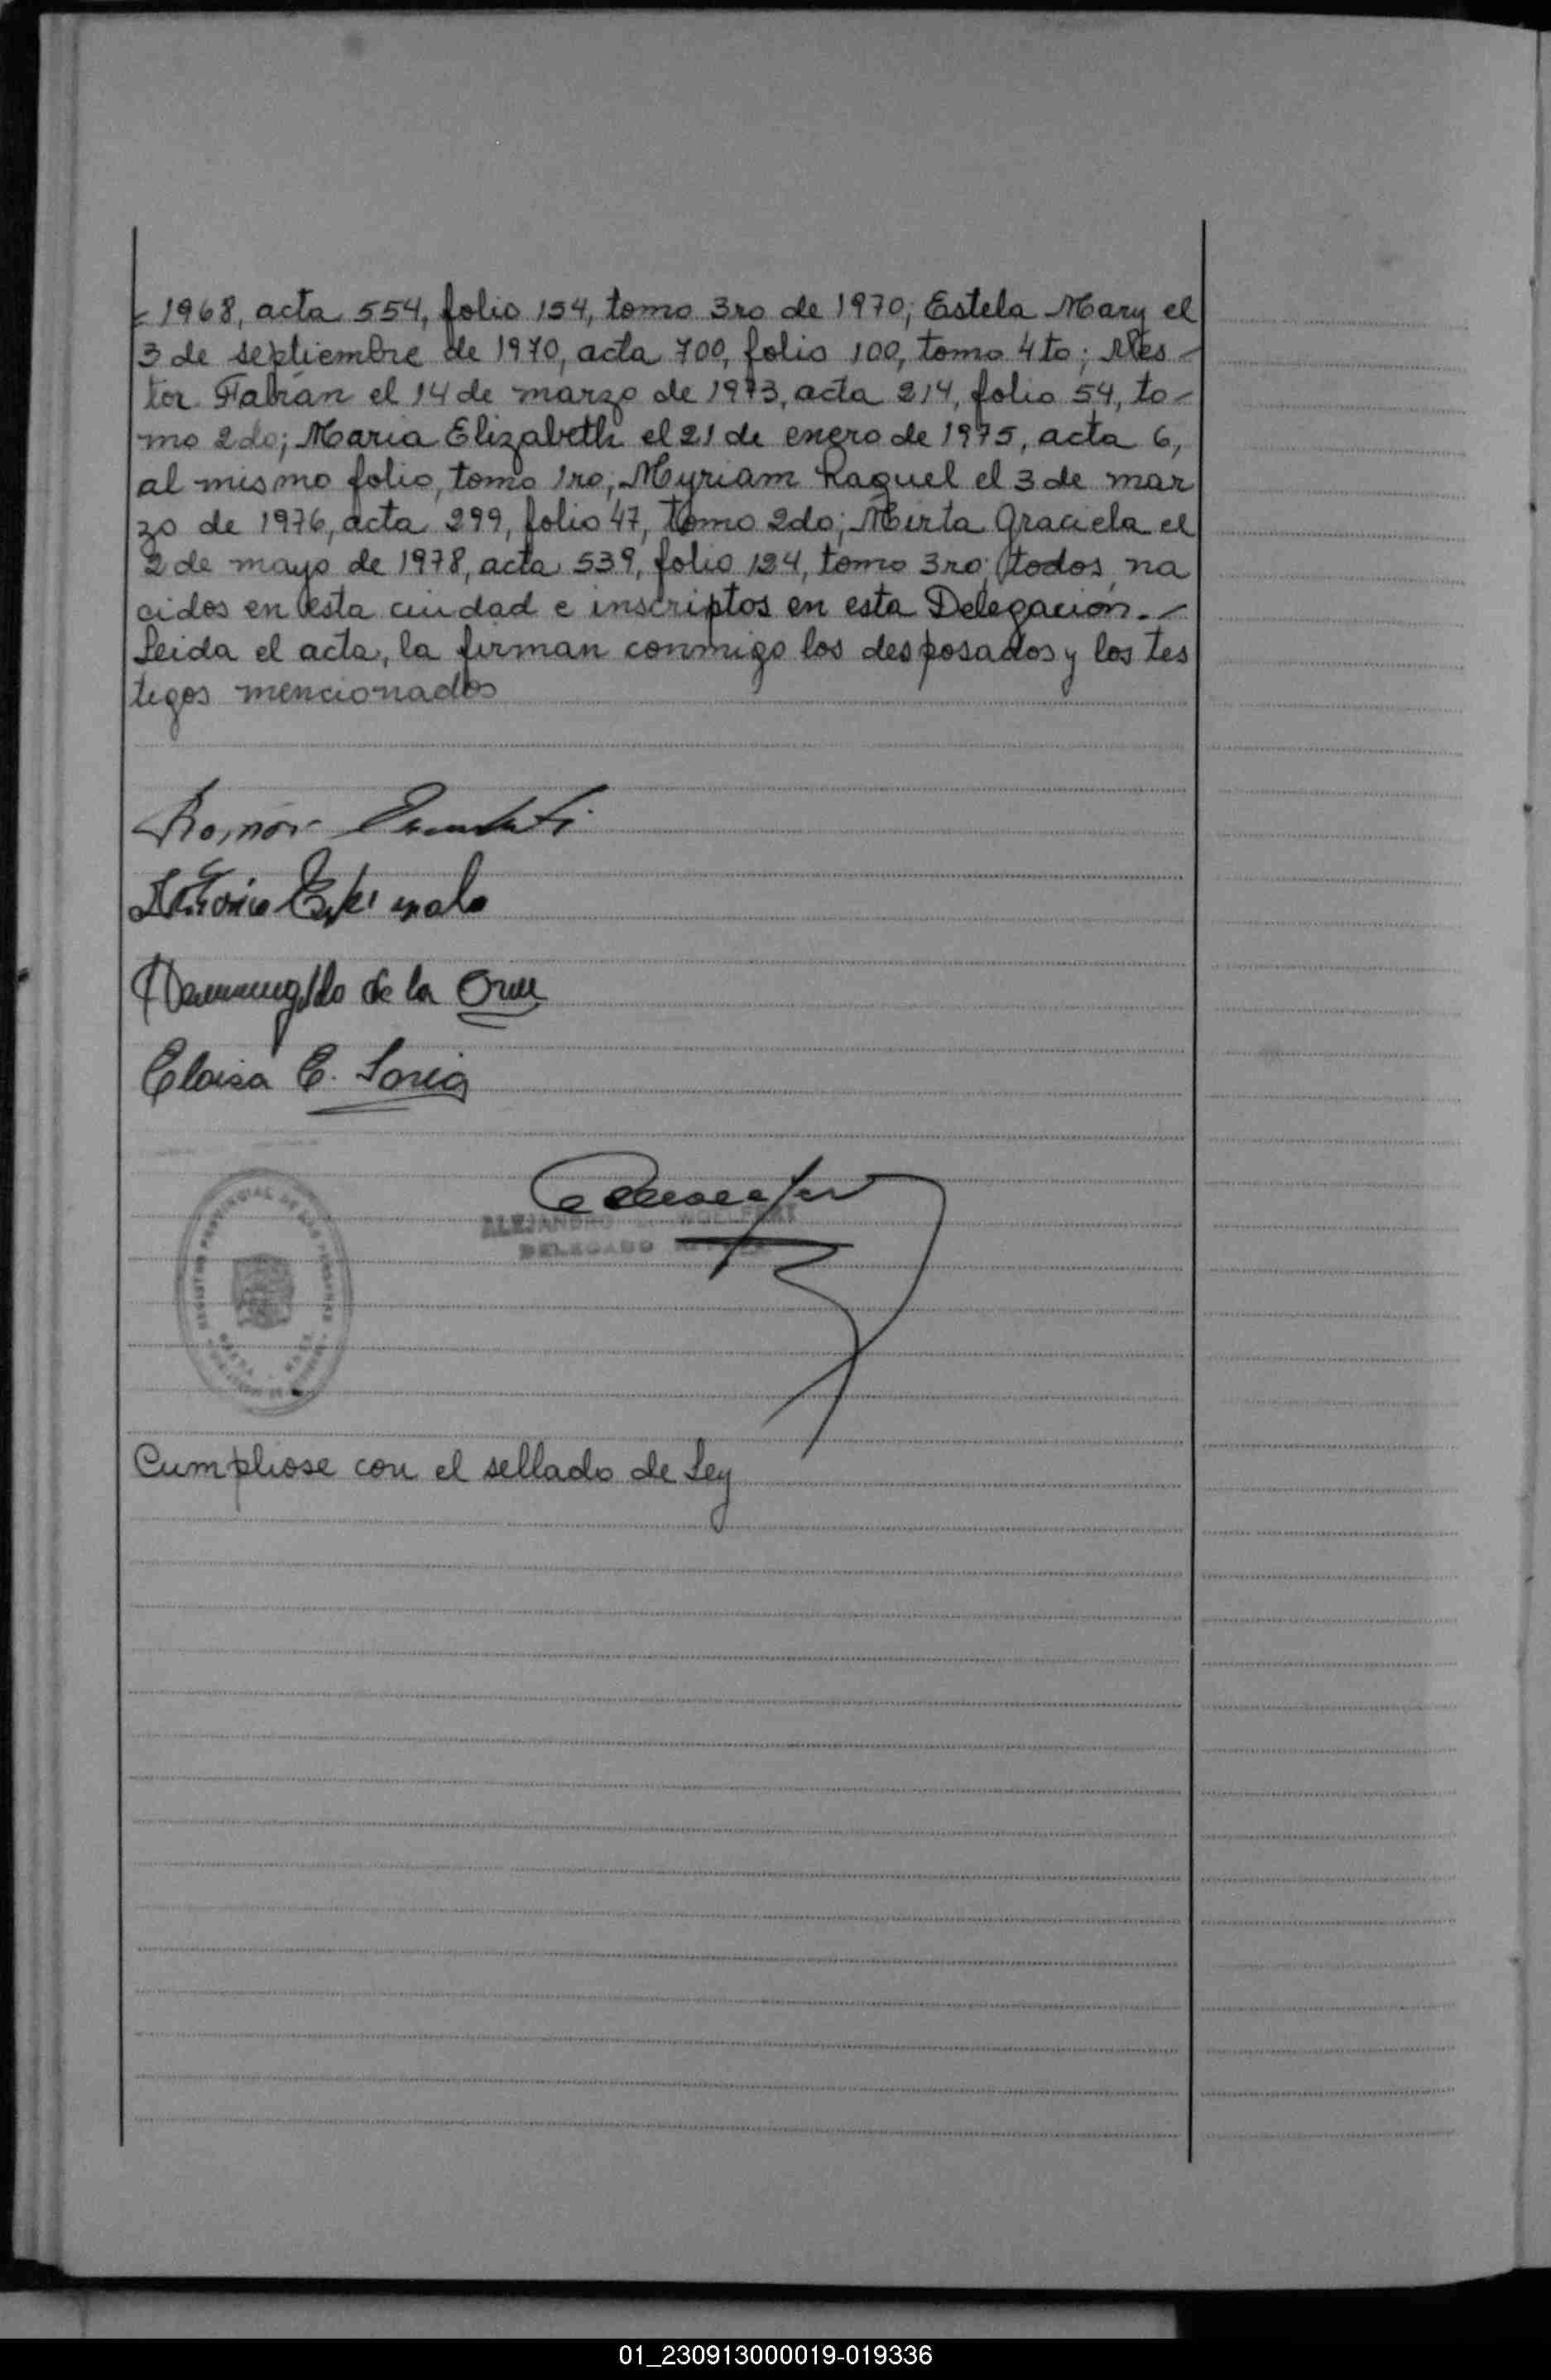 = 1968, acta 554, folio 154, tomo 3ro de 1970; Estela Mary el
3 de septiembre de 1970, acta 700, folio 100, tomo 4to; Nes-
tor Fabián el 14 de marzo de 1973, acta 214, folio 54, to-
mo 2do; Maria Elizabeth el 21 de enero de 1975, acta 6,
al mismo folio, tomo 1ro; Myriam Raquel el 3 de mar
zo de 1976, acta 299, folio 47, tomo 2do; Mirta Graciela el
2 de mayo de 1978, acta 539, folio 124, tomo 3ro; todos na
cidos en esta ciudad e inscriptos en esta Delegación.-
Leida el acta, la firman conmigo los desposados y los tes
tigos mencionados
Ramón
de la Cruz
Eloisa E. Soria
ALEJANDRO
DELEGADO
REGISTRO PROVINCIAL DE LAS PERSONAS
Cumpliose con el sellado de Ley
01_230913000019-019336